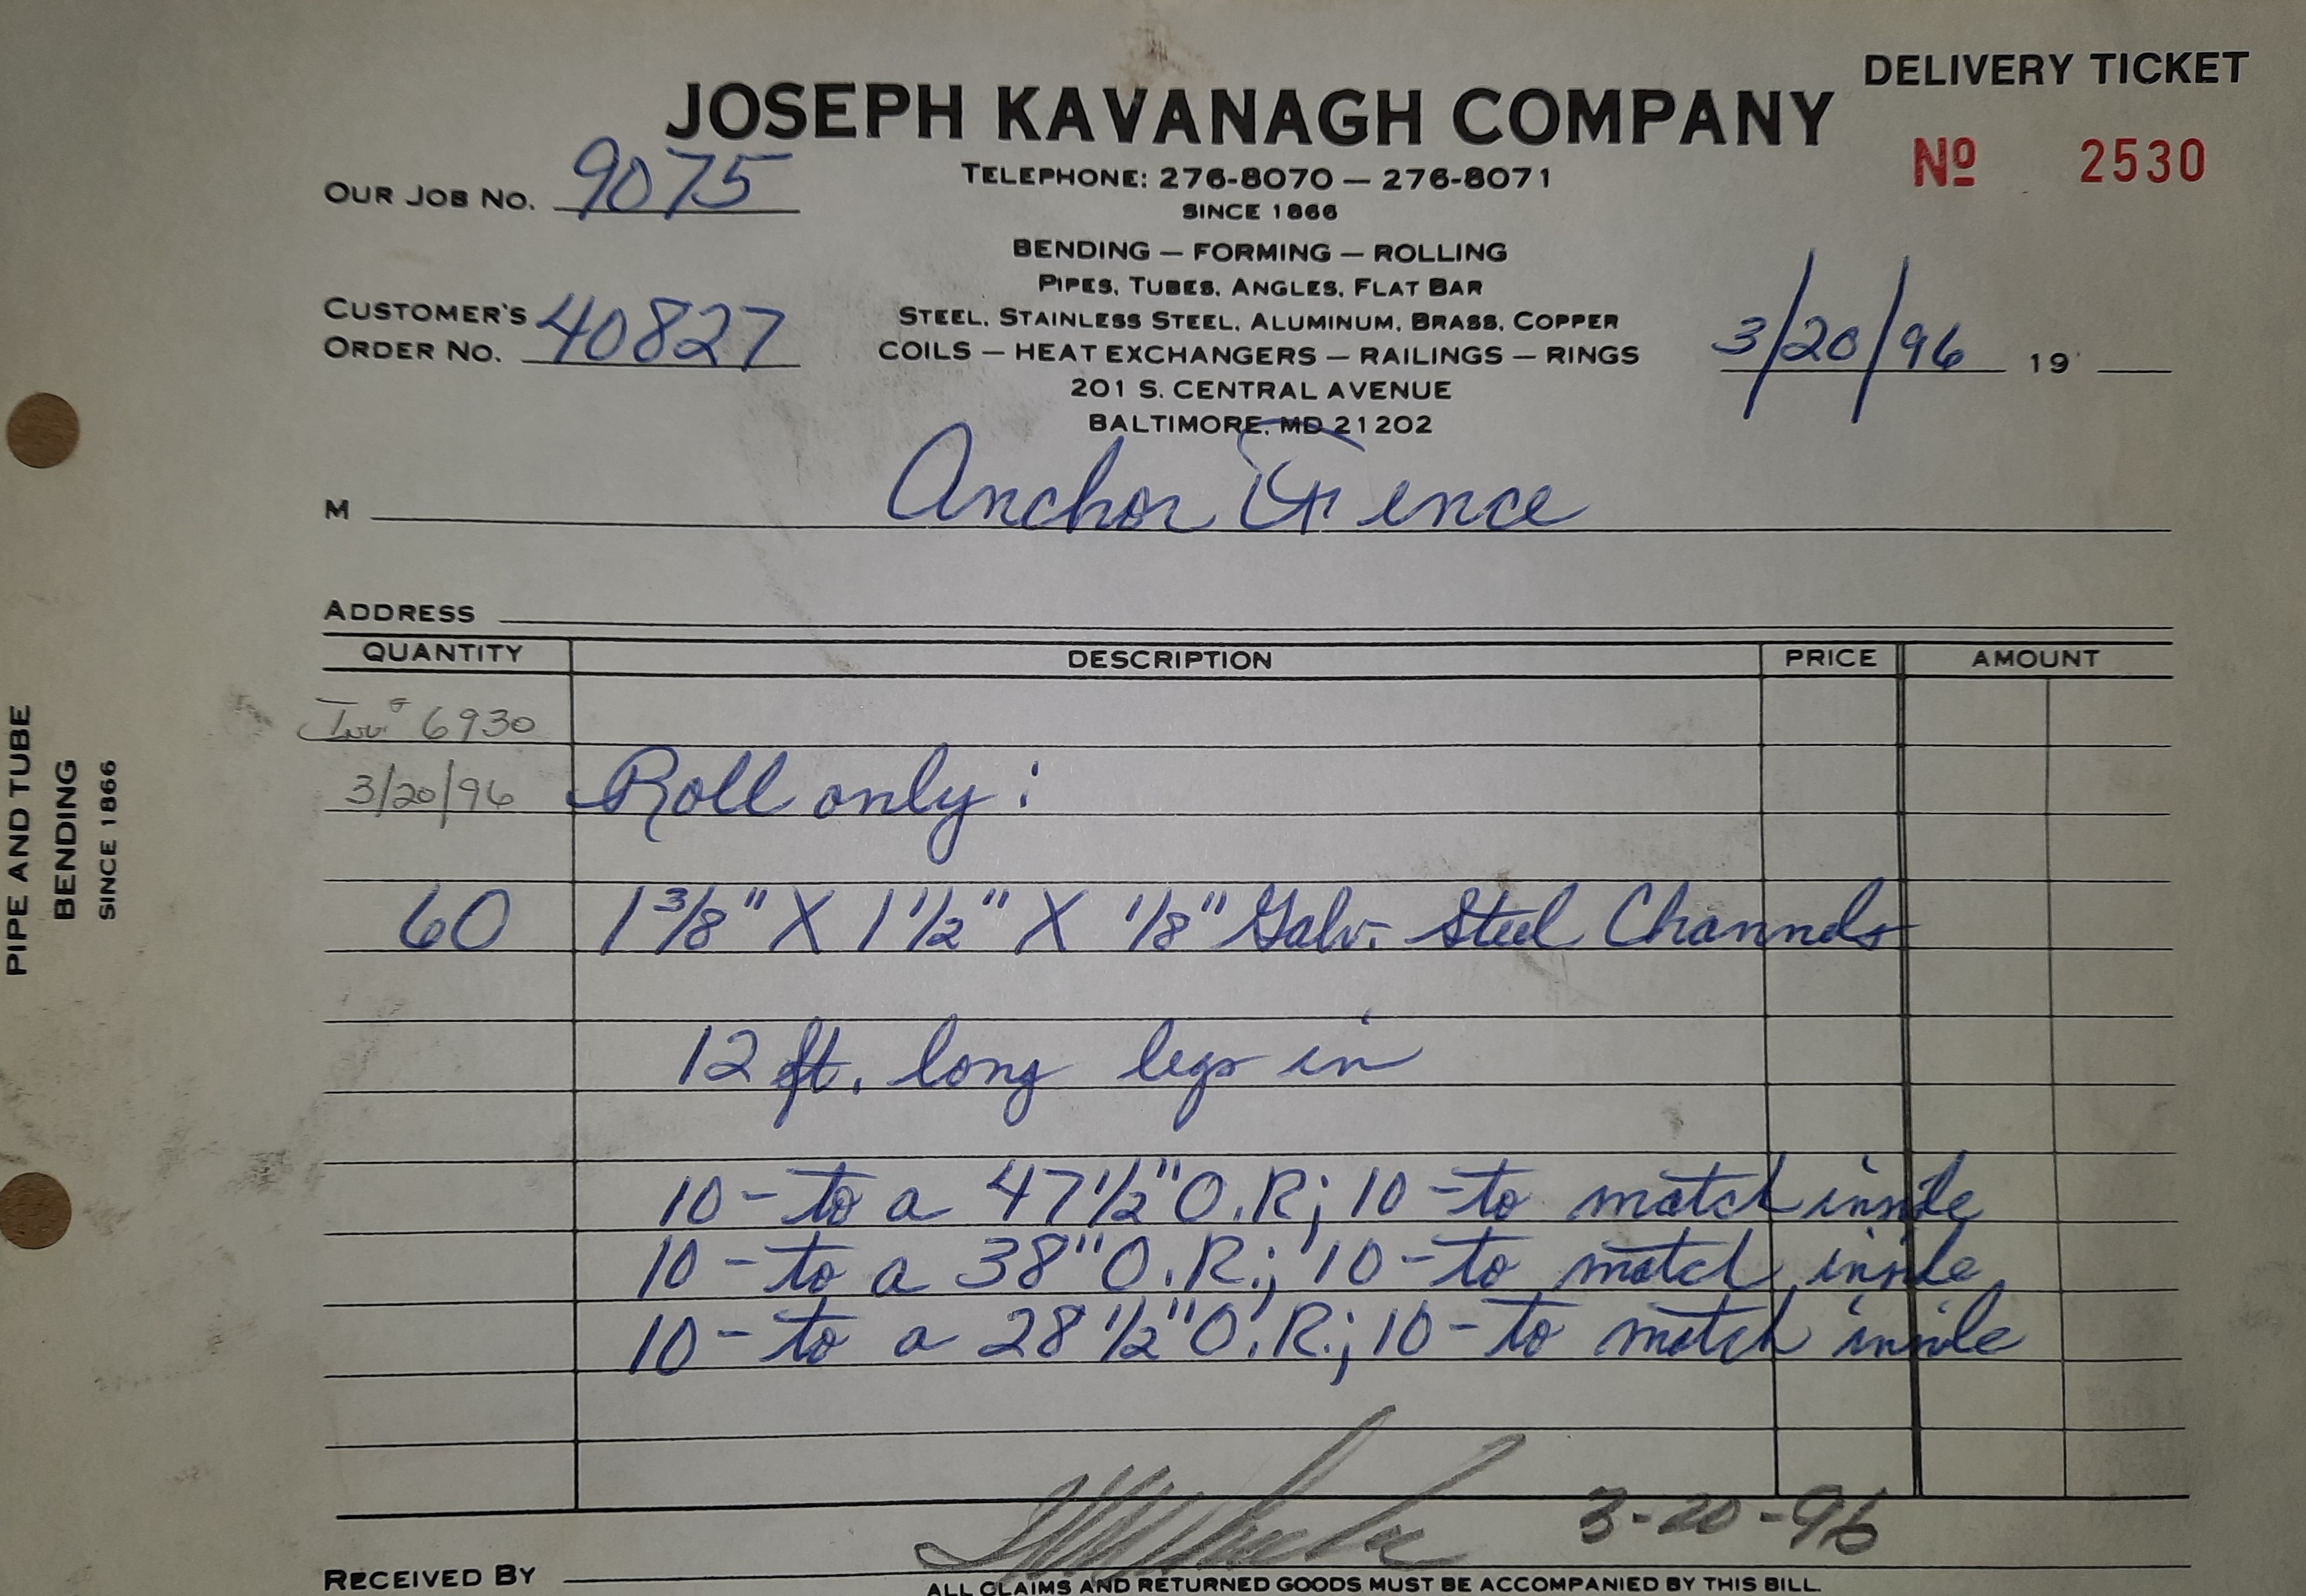 DELIVERY TICKET
JOSEPH KAVANAGH COMPANY
Nº 2530
OUR JOB NO. 9075
TELEPHONE: 276-8070 — 276-8071
SINCE 1866
BENDING — FORMING — ROLLING
PIPES, TUBES, ANGLES, FLAT BAR
CUSTOMER'S
ORDER NO. 40827
STEEL, STAINLESS STEEL, ALUMINUM, BRASS, COPPER
COILS — HEAT EXCHANGERS — RAILINGS — RINGS
3/20/96 19
201 S. CENTRAL AVENUE
BALTIMORE, MD 21202
M Anchor Fence
ADDRESS
QUANTITY DESCRIPTION PRICE AMOUNT
6930
3/20/96 Roll only:
60 1 3/8" X 1 1/2" X 1/8" Galv. Steel Channels
12 ft. long legs in
10 - to a 47 1/2" O.R; 10 - to match inside
10 - to a 38" O.R.; 10 - to match inside
10 - to a 28 1/2" O.R.; 10 - to match inside
3-20-96
RECEIVED BY
ALL CLAIMS AND RETURNED GOODS MUST BE ACCOMPANIED BY THIS BILL
PIPE AND TUBE
BENDING
SINCE 1866